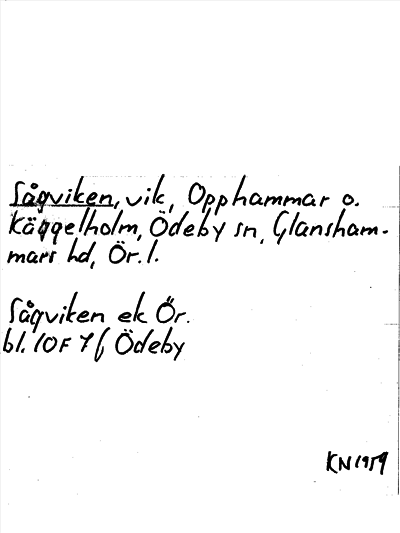 Sågviken, vik, Opphammar o.
Käggelholm, Ödeby sn, Glansham-
mars hd, Ör. l.
Sågviken ek Ör.
bl. 10F 7f Ödeby
KN 1959